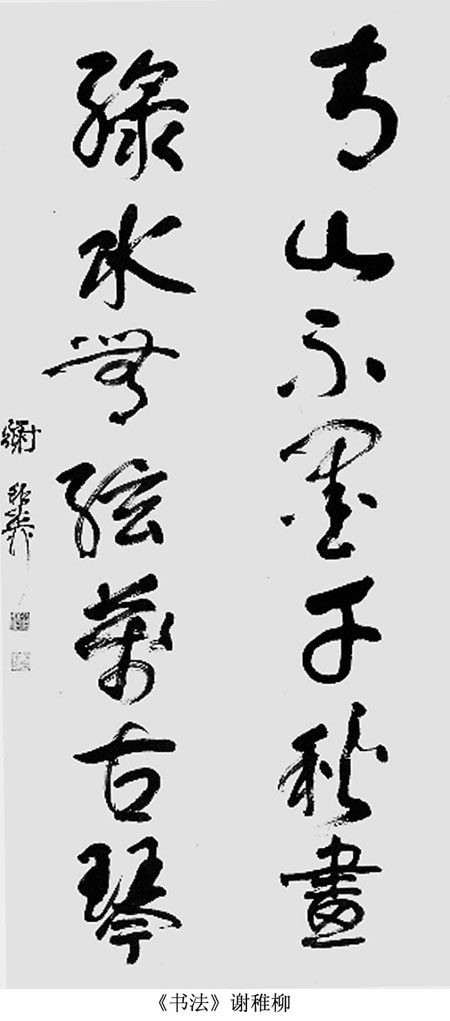 青山不墨千秋畫
綠水無絃萬古琴
謝稚柳
《书法》谢稚柳